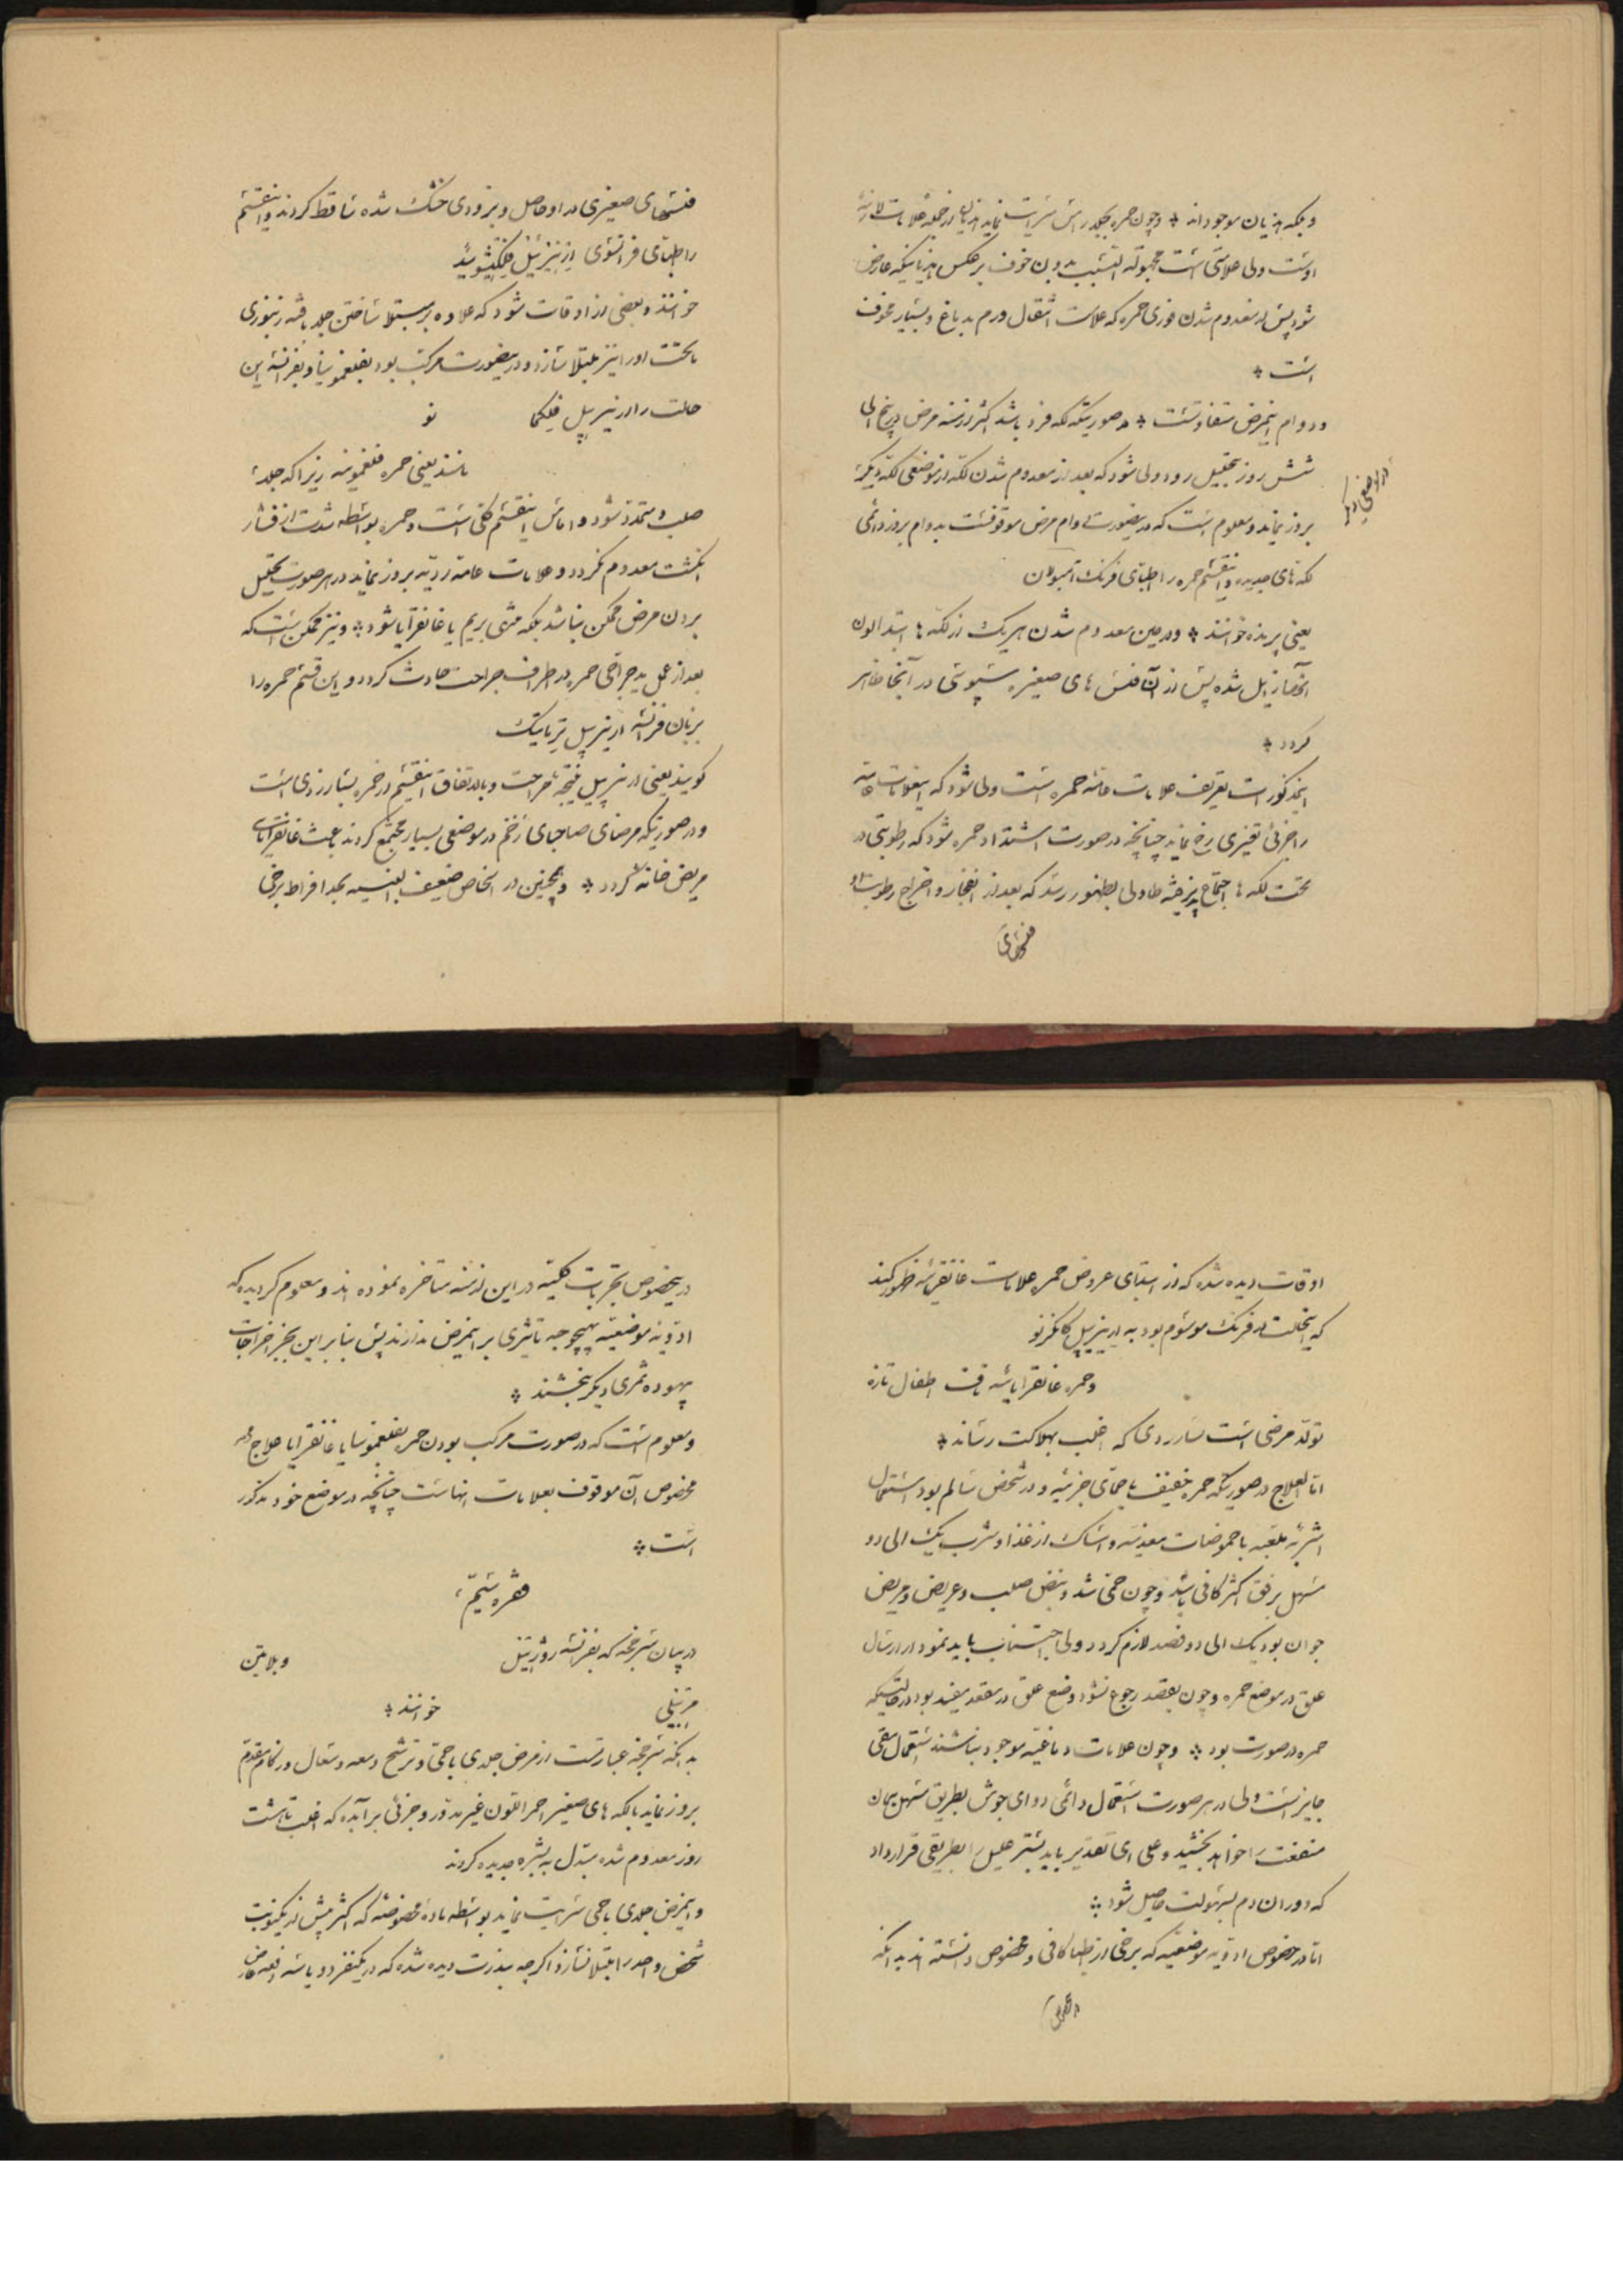 و بلکه هذیان موجود انه ❖ و چون حمره بجلد رأس سرایت نماید هذیان از جمله علامات لازمهٔ
اوست ولی علامتی است مجهولة السبب بدون خوف بر عکس هذیانیکه عارض
شود پس از معدوم شدن فوری حمره که علامت انتقال ورم بدماغ و بسیار مخوف
است ❖
و دوام اینمرض متفاوتست ❖ در صورتیکه لکه فرد باشد اکثر ازمنه مرض در پنج الی
شش روز بتحلیل رود ولی شود که بعد از معدوم شدن لکه از موضعی لکه دیگر
در مواضعی دیگر
بروز نماید و معلوم است که در اینصورت دوام مرض موقوفست بدوام بروز دائمی
لکه های جدیده و اینقسم حمره را اطبای فرنک آمبولان
یعنی پرنده خوانند ❖ و در حین معدوم شدن هر یک از لکه ها ابتدا لون
آنها زایل شده پس از آن فلس های صغیره سبوسی در آنجا ظاهر
گردد ❖
اینمذکورات تعریف علامات عامه حمره است ولی شود که اینعلامات عامه
را جزئی تغییری رخ نماید چنانچه در صورت اشتداد حمره شود که رطوبتی در
تحت لکه ها اجتماع پذیرفته طاولی بظهور رسد که بعد از انفجار و اخراج رطوبت او
فلسهای
فلسهای صغیری در او حاصل و بزودی خشک شده ساقط کردند و اینقسم
را اطبای فرانسوی ارزیپل فلیکتنوئید
خوانند و بعضی از اوقات شود که علاوه بر مبتلا ساختن جلد بافته زنبوری
ماتحت او را نیز مبتلا سازد و در اینصورت مرکب بود بفلغمونیا و بفرانسه این
حالت را ارزیپل فلکما نو
نامند یعنی حمره فلغمونیه زیرا که جلد
صلب و متمدد شود و اماس اینقسم کلی است و حمره بواسطه شدت از فشار
انگشت معدوم نکردد و علامات عامه ردیه بروز نماید در هر صورت تحلیل
بردن مرض ممکن نباشد بلکه منتهی بریم یا غانقرایا شود ❖ و نیز ممکن است که
بعد از عمل ید جراحی حمره در اطراف جراحت حادث کردد و این قسم حمره را
بزبان فرانسه ارزیپل ترماتیک
گویند یعنی ارزیپل نتیجه جراحت و بالاتفاق اینقسم از حمره بسیار ردی است
و در صورتیکه مرضای صاحبای زخم در موضعی بسیار مجتمع کردند باعث غانقرایای
مریض خانه کردد ❖ و همچنین در اشخاص ضعیف البنیه بحد افراط برخی
اوقات دیده شده که از ابتدای عروض حمره علامات غانقریه ظهور کند
که اینحالت در فرنک موسوم بود به ارزیپل کانکرنو
و حمره غانقرایا بافت اطفال تازه
تولد مرضی است بسیار ردی که اغلب بهلاکت رساند ❖
اما العلاج در صورتیکه حمره خفیف با حمای جزئیه و در شخص سالم بود استعمال
اشربه ملعبه با حموضات معدنیه و امساک از غذا و شرب یک الی دو
مسهل برفق اکثر کافی باشد و چون حمی شد و نبض صلب و عریض و مریض
جوان بود یک الی دو فصد لازم کردد ولی اجتناب باید نمود از ارسال
علق در موضع حمره و چون بفصد رجوع نشود وضع علق در مقعد مفید بود در حالتیکه
حمره در صورت بود ❖ و چون علامات دماغیه موجود نباشند استعمال مقی
جایز است ولی در هر صورت استعمال دائمی دوای جوش بطریق مسهل همان
منفعت را خواهد بخشید و علی ای تقدیر باید بستر علیل را بطریقی قرار داد
که دوران دم بسهولت حاصل شود ❖
اما در خصوص ادویه موضعیه که برخی از اطبا کافی و مخصوص دانسته اند بدانکه
در اینخصوص تجربات کلیه در این ازمنه متاخره نموده اند و معلوم گردیده که
ادویه موضعیه بهیچوجه تاثیری بر اینمرض ندارند پس بنابر این بجز اخراجات
بیهوده ثمری دیگر نبخشند ❖
و معلوم است که در صورت مرکب بودن حمره بفلغمونیا یا غانقرایا علاج
مخصوص آن موقوف بعلامات انهاست چنانچه در موضع خود مذکور
است ❖
فقره سیم
در بیان سرخجه که بفرانسه روژئل و بلاتین
مربیلی خوانند ❖
بدانکه سرخجه عبارتست از مرض جلدی با حمی و ترشح دمعه و سعال و زکام مقدم
بروز نماید با لکه های صغیر احمر اللون غیر مدور و جزئی برآمده که اغلب تا هشت
روز معدوم شده مبدل به بشره جدیده کردند
و اینمرض جلدی با حمی سرایت نماید بواسطه ماده مخصوصه که اکثر بیش از یکنوبت
شخص واحد را مبتلا نسازد اگرچه بندرت دیده شده که در یکنفر دو یا سه دفعه عارض